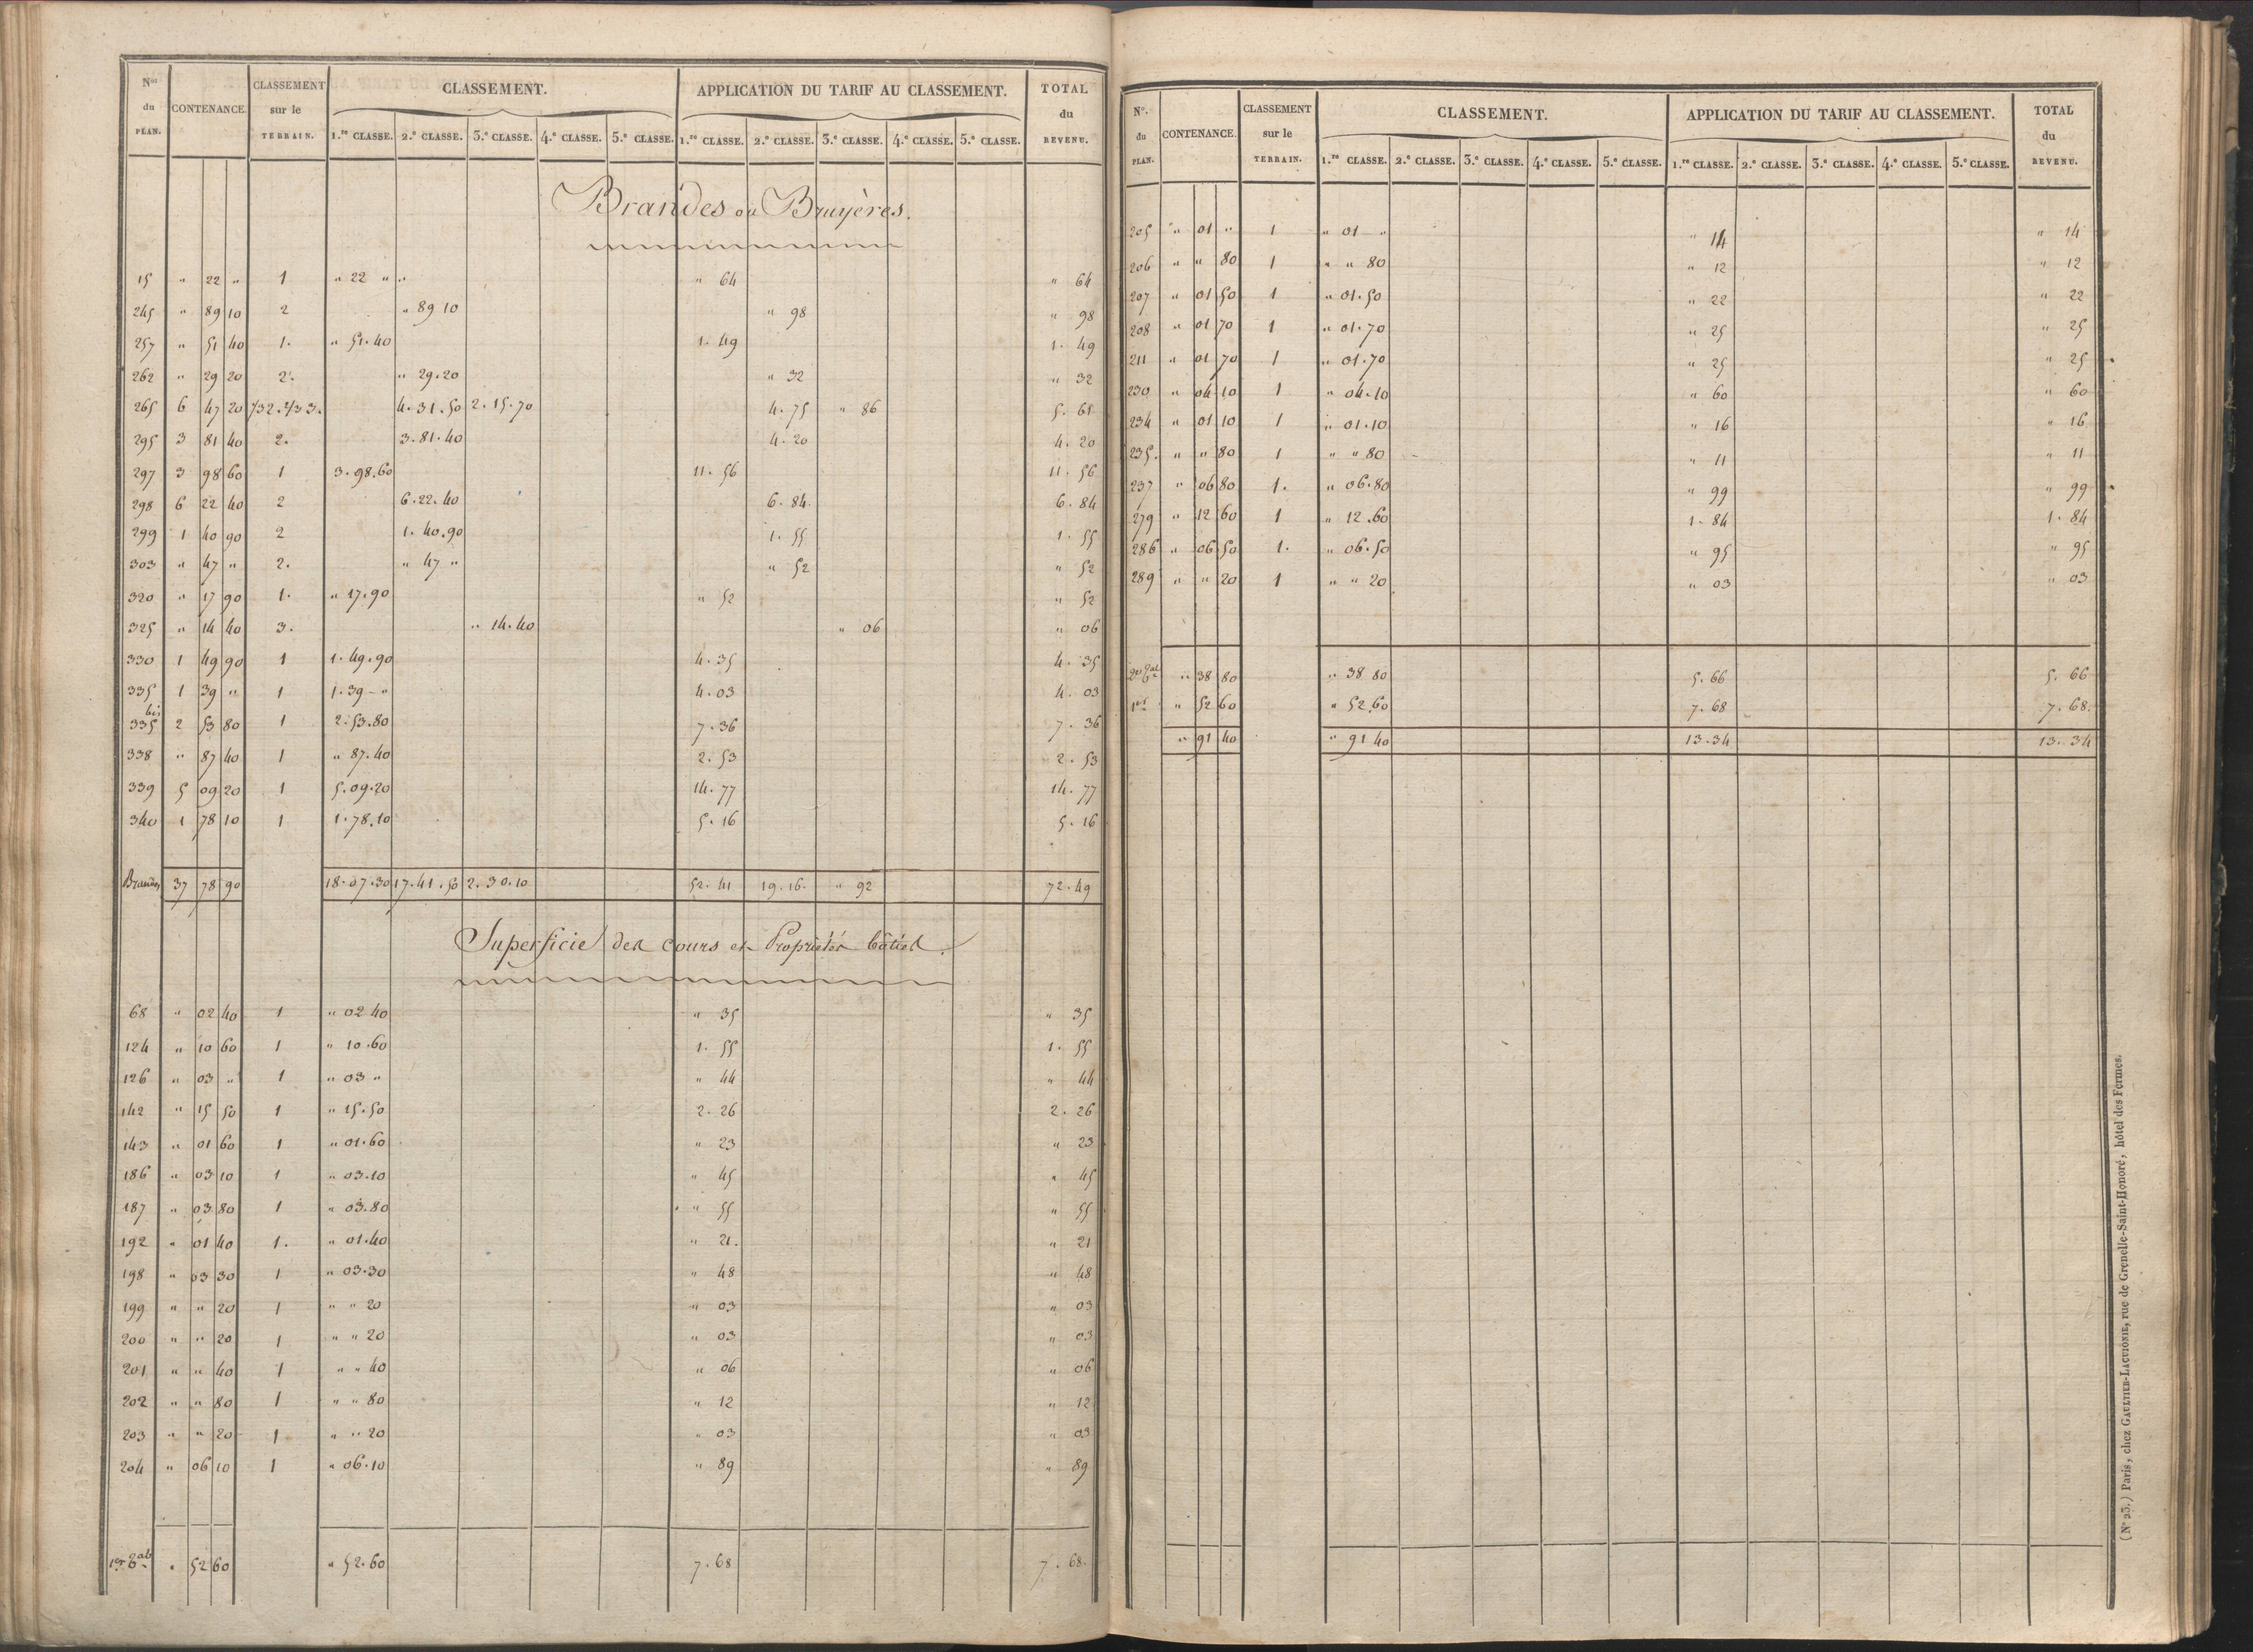 Nos du PLAN. CONTENANCE. CLASSEMENT sur le TERRAIN. CLASSEMENT. APPLICATION DU TARIF AU CLASSEMENT. TOTAL du REVENU.
1.re CLASSE. 2.e CLASSE. 3.e CLASSE. 4.e CLASSE. 5.e CLASSE. 1.re CLASSE. 2.e CLASSE. 3.e CLASSE. 4.e CLASSE. 5.e CLASSE.
Brandes ou Bruyères.
15 " 22 " 1 " 22 " " " 64 " 64
245 " 89 10 2 " 89 10 " 98 " 98
257 " 51 40 1. " 51.40 1. 49 1. 49
262 " 29 20 2. " 29.20 " 32 " 32
265 6 47 20 1/3 2. 2/3 3. 4.31.50 2.15.70 4.75 " 86 5. 61
295 3 81 40 2. 3.81.40 4.20 4. 20
297 3 98 60 1 3.98.60 11.56 11. 56
298 6 22 40 2 6.22.40 6.84 6. 84
299 1 40 90 2 1.40.90 1.55 1. 55
303 " 47 " 2. " 47 " " 52 " 52
320 " 17 90 1. " 17.90 " 52 " 52
325 " 14 40 3. " 14.40 " 06 " 06
330 1 49 90 1 1.49.90 4.35 4. 35
335 1 39 " 1 1.39 - " 4.03 4. 03
335 bis 2 53 80 1 2.53.80 7.36 7. 36
338 " 87 40 1 " 87.40 2.53 2. 53
339 5 09 20 1 5.09.20 14.77 14. 77
340 1 78 10 1 1.78.10 5.16 5. 16
Brandes 37 78 90 18.07.30 17.41.50 2.30.10 52.41 19.16. " 92 72.49
Superficie des cours et Propriétés bâties.
68 " 02 40 1 " 02 40 " 35 " 35
124 " 10 60 1 " 10.60 1. 55 1. 55
126 " 03 " 1 " 03 " " 44 " 44
142 " 15 50 1 " 15.50 2. 26 2. 26
143 " 01 60 1 " 01.60 " 23 " 23
186 " 03 10 1 " 03.10 " 45 " 45
187 " 03 80 1 " 03.80 " 55 " 55
192 " 01 40 1. " 01.40 " 21. " 21
198 " 03 30 1 " 03.30 " 48 " 48
199 " " 20 1 " " 20 " 03 " 03
200 " " 20 1 " " 20 " 03 " 03
201 " " 40 1 " " 40 " 06 " 06
202 " " 80 1 " " 80 " 12 " 12
203 " " 20 1 " " 20 " 03 " 03
204 " 06 10 1 " 06.10 " 89 " 89
1er " 52 60 " 52.60 7.68 7. 68.
No. du PLAN. CONTENANCE. CLASSEMENT sur le TERRAIN. CLASSEMENT. APPLICATION DU TARIF AU CLASSEMENT. TOTAL du REVENU.
1.re CLASSE. 2.e CLASSE. 3.e CLASSE. 4.e CLASSE. 5.e CLASSE. 1.re CLASSE. 2.e CLASSE. 3.e CLASSE. 4.e CLASSE. 5.e CLASSE.
205 " 01 " 1 " 01 " " 14 " 14
206 " " 80 1 " " 80 " 12 " 12
207 " 01 50 1 " 01.50 " 22 " 22
208 " 01 70 1 " 01.70 " 25 " 25
211 " 01 70 1 " 01.70 " 25 " 25
230 " 04 10 1 " 04.10 " 60 " 60
234 " 01 10 1 " 01.10 " 16 " 16
235. " " 80 1 " " 80 " 11 " 11
237 " 06 80 1. " 06.80 " 99 " 99
279 " 12 60 1 " 12.60 1. 84 1. 84
286 " 06 50 1. " 06.50 " 95 " 95
289 " " 20 1 " " 20 " 03 " 03
" 38 80 " 38 80 5.66 5. 66
1er " 52 60 " 52.60 7.68 7. 68.
" 91 40 " 91 40 13.34 13. 34
(N° 23.) Paris, chez GAULTIER-LAGUIONIE, rue de Grenelle-Saint-Honoré, hôtel des Fermes.